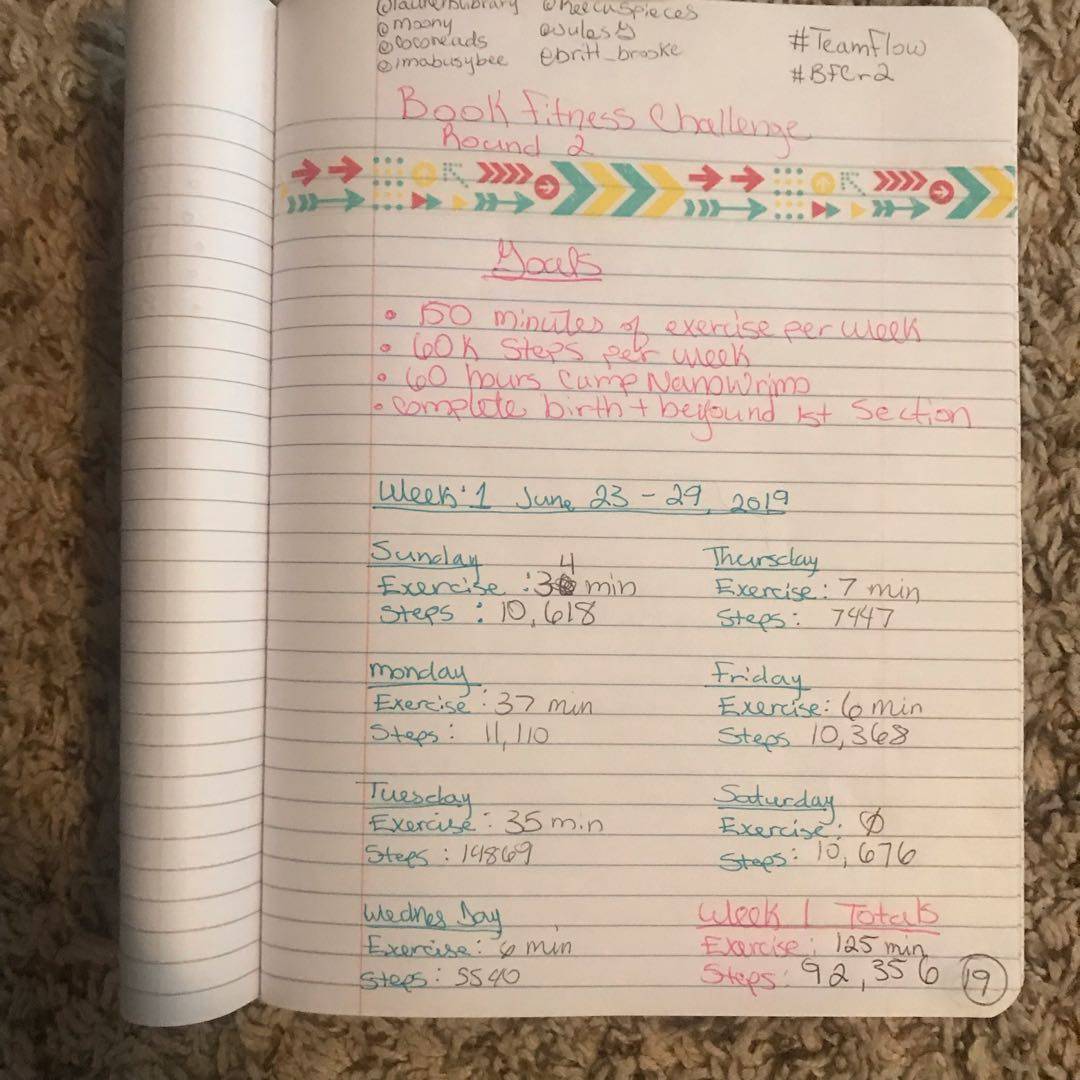 @moony
@cocoreads
@imabusybee
@julesg
@britt_brooke
#TeamFlow
#BFCr2
Book Fitness Challenge
Round 2
Goals
• 150 minutes of exercise per week
• 60K Steps per week
• 60 hours Camp NanoWrimo
• complete birth + beyound 1st Section
Week 1 June 23 - 29, 2019
Sunday
Exercise : 34 min
Steps : 10,618
monday
Exercise : 37 min
Steps : 11,110
Tuesday
Exercise : 35 min
Steps : 14869
Wednes Day
Exercise : 6 min
Steps :
Thursday
Exercise : 7 min
Steps : 7447
Friday
Exercise : 6 min
Steps 10,368
Saturday
Exercise : Ø
Steps : 10,676
Week 1 Totals
Exercise : 125 min
Steps : 92,356
19